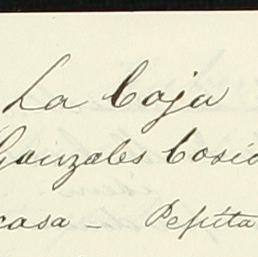 La Caja
Gonzales Cosio
casa - Pepita